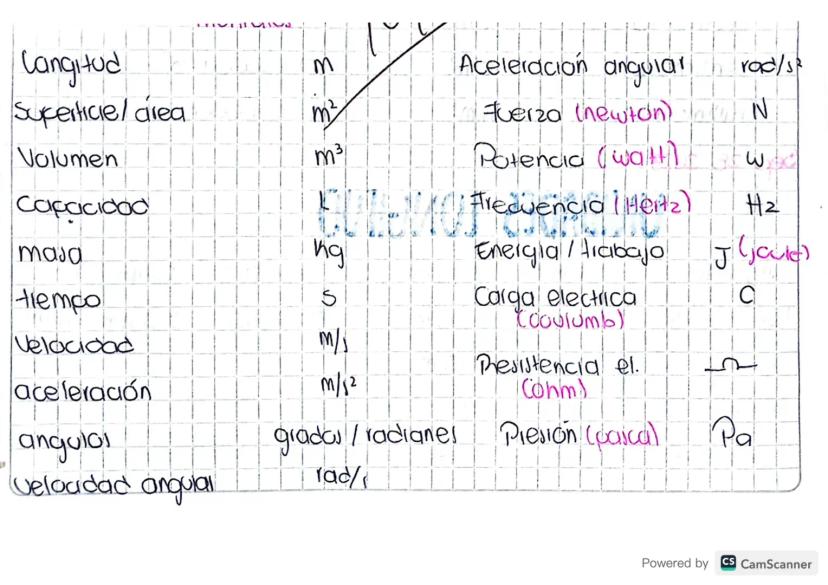 Longitud m
Superficie/ área m²
Volumen m³
Capacidad L
masa kg
tiempo s
Velocidad m/s
aceleración m/s²
angulos grados / radianes
velocidad angular rad/s
Aceleración angular rad/s²
Fuerza (newton) N
Potencia (watt) W
Frecuencia (Hertz) Hz
Energía / trabajo J (joule)
Carga electrica C
(coulumb)
Resistencia el. Ω
(ohm)
Presión (pascal) Pa
Powered by CS CamScanner